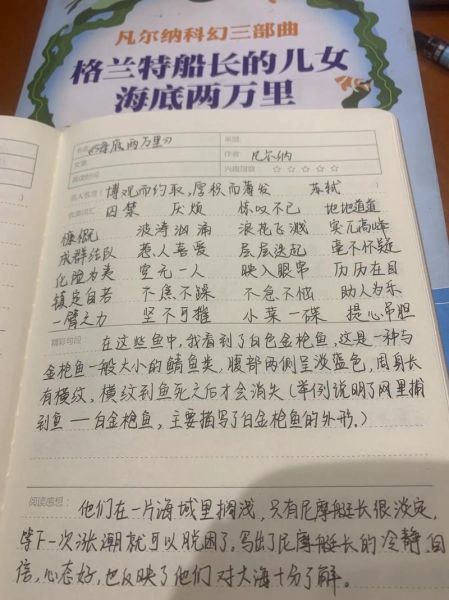 凡尔纳科幻三部曲
格兰特船长的儿女
海底两万里
《海底两万里》
作者: 凡尔纳
名人名言: 博观而约取,厚积而薄发 苏轼
囚禁 厌烦 惊叹不已 地地道道
慷慨 波涛汹涌 浪花飞溅 实元高峰
成群结队 惹人喜爱 层层迭起 毫不怀疑
化险为夷 空无一人 映入眼帘 历历在目
镇定自若 不焦不躁 不急不恼 助人为乐
一臂之力 坚不可摧 小菜一碟 提心吊胆
精彩句段: 在这些鱼中,我看到了白色金枪鱼,这是一种与
金枪鱼一般大小的鲭鱼类,腹部两侧呈淡蓝色,周身长
有横纹,横纹到鱼死之后才会消失(举例说明了网里捕
到鱼——白金枪鱼,主要描写了白金枪鱼的外形。)
阅读感想: 他们在一片海域里搁浅,只有尼摩艇长很淡定,
等下一次涨潮就可以脱困了。写出了尼摩艇长的冷静,自
信,心态好,也反映了他们对大海十分了解。